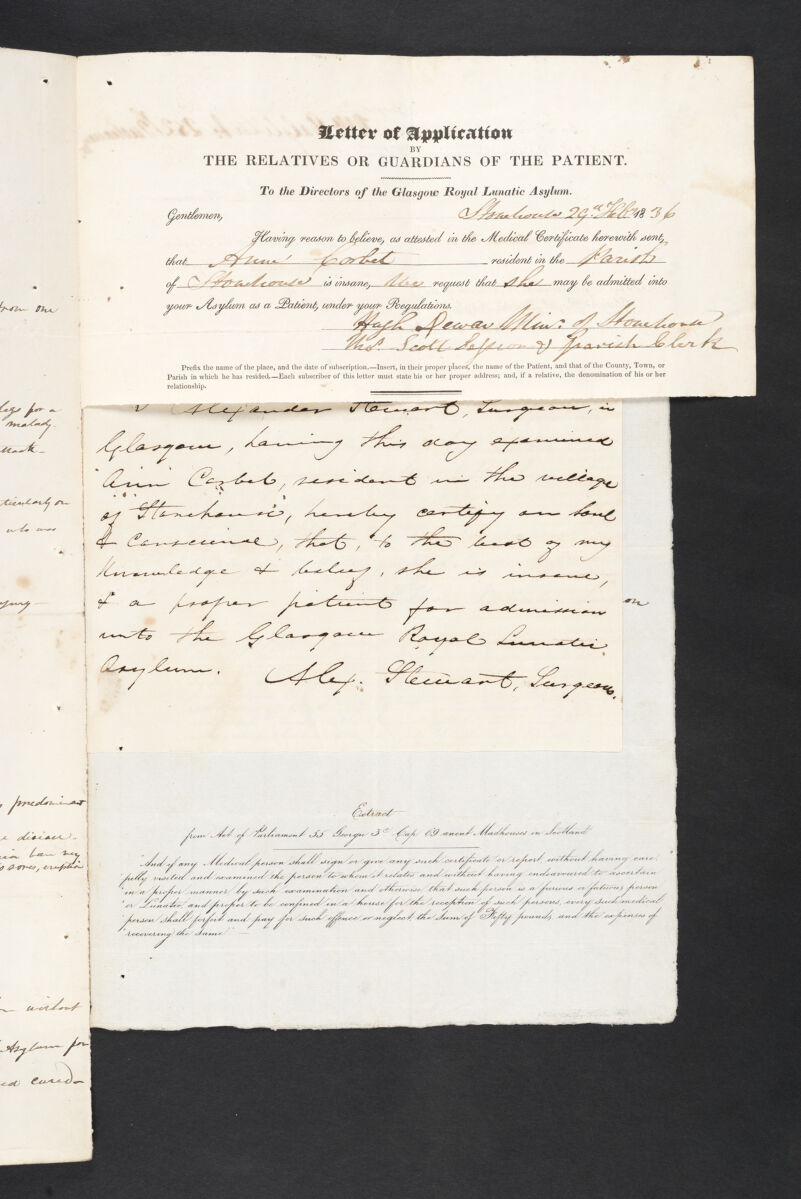 Letter of Application
BY
THE RELATIVES OR GUARDIANS OF THE PATIENT.
To the Directors of the Glasgow Royal Lunatic Asylum.
Gentlemen,
Stonehouse 29th Feby 1836
Having reason to believe, as attested in the Medical Certificate herewith sent,
that Anne Corbet resident in the Parish
of Stonehouse is insane, We request that She may be admitted into
your Asylum as a Patient, under your Regulations.
Hugh Dewar Minr. of Stonehouse
Ths. Scott Session & Parish Clerk
Prefix the name of the place, and the date of subscription.—Insert, in their proper places, the name of the Patient, and that of the County, Town, or
Parish in which he has resided.—Each subscriber of this letter must state his or her proper address; and, if a relative, the denomination of his or her
relationship.
I Alexander Steuart, Surgeon, in
Glasgow, having this day examined
Ann Corbet, resident in the village
of Stonehouse, hereby certify on Soul
& Conscience, that, to the best of my
Knowledge & belief, she is insane,
& a proper patient for admission
unto the Glasgow Royal Lunatic
Asylum. Alex. Steuart, Surgeon.
on
Extract
from Act of Parliament 55 George 3d Cap 69 anent Madhouses in Scotland
"And if any Medical person shall sign or give any such certificate or report without having care-
"fully visited and examined the person to whom it relates and without having endeavoured to ascertain
"in a proper manner by such examination and otherwise that such person is a furious or fatuous person
"or Lunatic, and proper to be confined in a house for the reception of such persons, every such medical
"person shall forfeit and pay for such offence or neglect, the sum of Fifty pounds, and the expenses of
"recovering the same
from one
for a
malady
ticularly on
who was
predominant
disease
sores,
without
Asylum for
cured